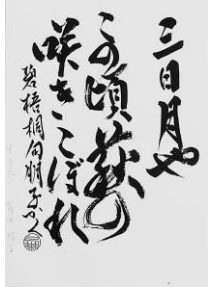 三日月や
この頃萩の
咲きこぼれ
碧梧桐句 朋子かく